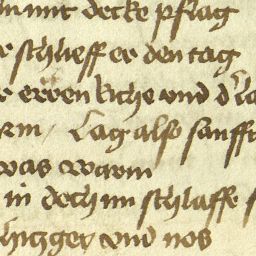 mit decke pflag
schlieff er den tag
er erren kiche vnd d
arm / Lag also sanfft
was warm
in doch im schlaffe s
hitzger vnd nos